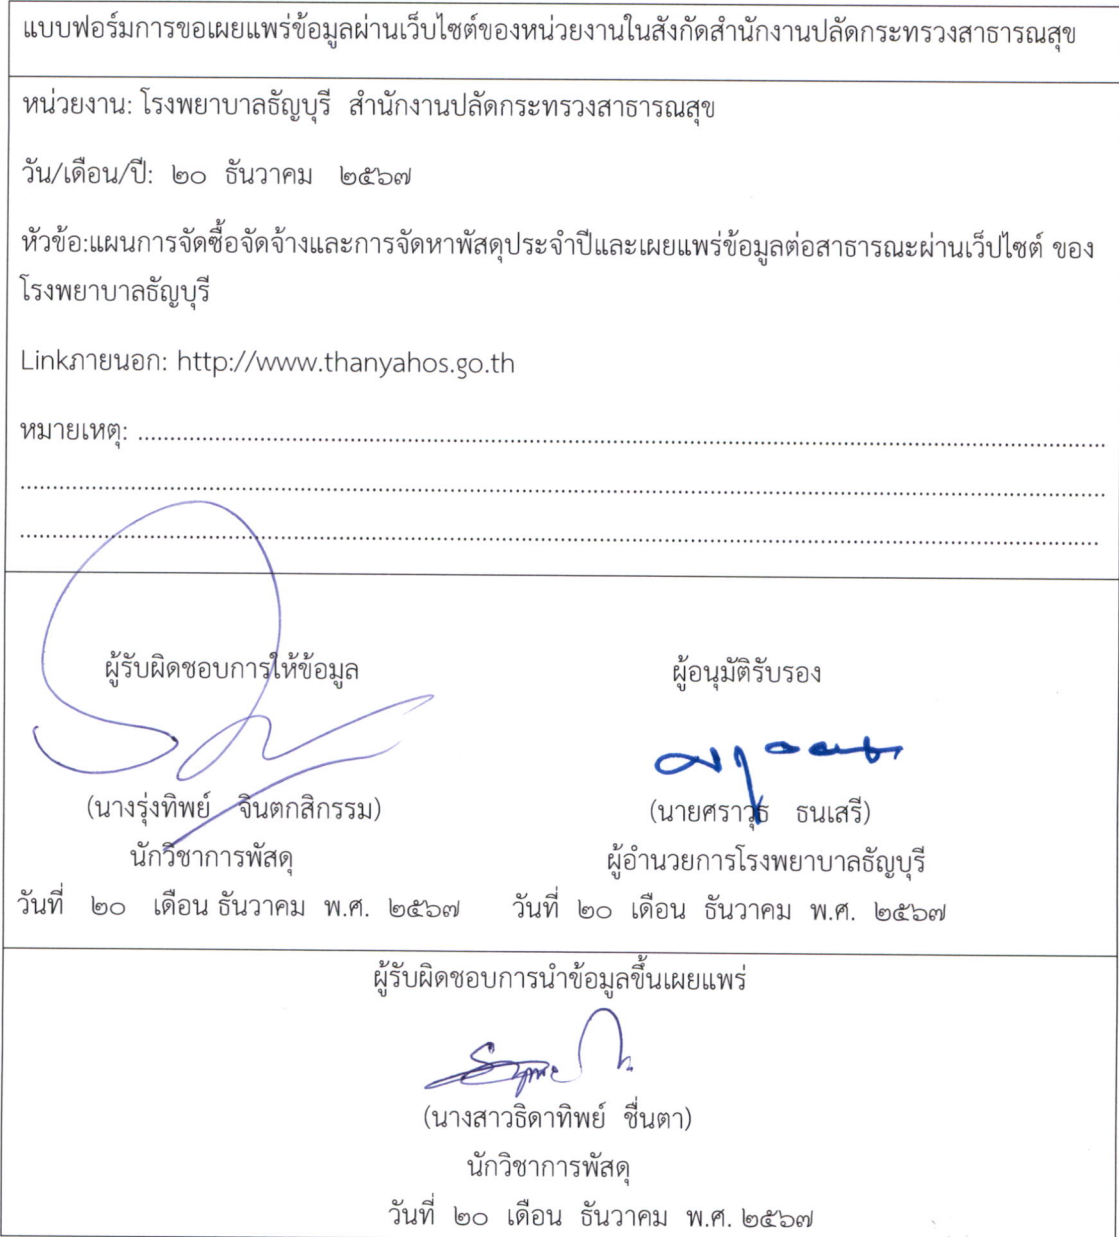 แบบฟอร์มการขอเผยแพร่ข้อมูลผ่านเว็บไซต์ของหน่วยงานในสังกัดสำนักงานปลัดกระทรวงสาธารณสุข
หน่วยงาน: โรงพยาบาลธัญบุรี สำนักงานปลัดกระทรวงสาธารณสุข
วัน/เดือน/ปี: ๒๐ ธันวาคม ๒๕๖๗
หัวข้อ:แผนการจัดซื้อจัดจ้างและการจัดหาพัสดุประจำปีและเผยแพร่ข้อมูลต่อสาธารณะผ่านเว็ปไซต์ ของ
โรงพยาบาลธัญบุรี
Linkภายนอก: http://www.thanyahos.go.th
หมายเหตุ: ........................................................................
........................................................................
........................................................................
ผู้รับผิดชอบการให้ข้อมูล ผู้อนุมัติรับรอง
(นางรุ่งทิพย์ จินตกสิกรรม) (นายศราวุธ ธนเสรี)
นักวิชาการพัสดุ ผู้อำนวยการโรงพยาบาลธัญบุรี
วันที่ ๒๐ เดือน ธันวาคม พ.ศ. ๒๕๖๗ วันที่ ๒๐ เดือน ธันวาคม พ.ศ. ๒๕๖๗
ผู้รับผิดชอบการนำข้อมูลขึ้นเผยแพร่
(นางสาวธิดาทิพย์ ชื่นตา)
นักวิชาการพัสดุ
วันที่ ๒๐ เดือน ธันวาคม พ.ศ. ๒๕๖๗